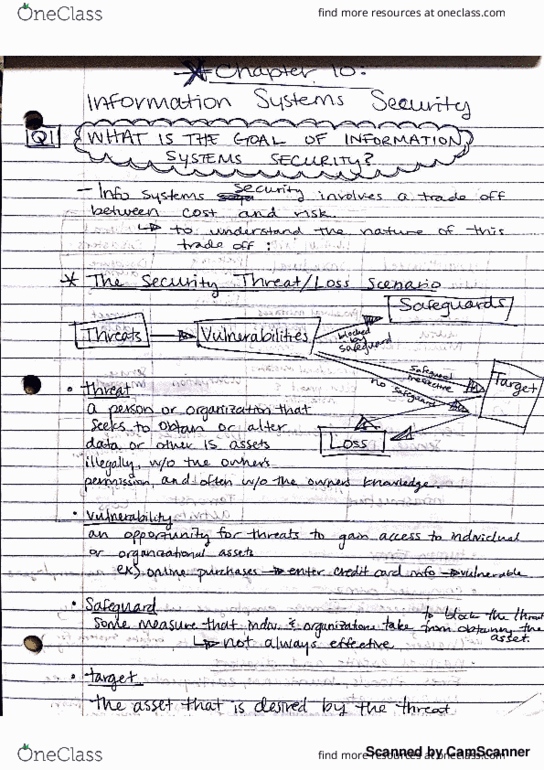 OneClass
find more resources at oneclass.com
Chapter 10:
Information Systems Security
Q1
WHAT IS THE GOAL OF INFORMATION
SYSTEMS SECURITY?
- Info systems security involves a trade off
between cost and risk.
↳ to understand the nature of this
trade off:
* The Security Threat/Loss Scenario
Safeguards
Threats
Vulnerabilities
blocked by safeguard
Safeguard ineffective
no safeguard
Target
Loss
• Threat
a person or organization that
seeks to obtain or alter
data or other IS assets
illegally, w/o the owners
permission, and often w/o the owners knowledge.
• Vulnerability
an opportunity for threats to gain access to individual
or organizational assets
ex) online purchases → enter credit card info → vulnerable
• Safeguard
some measure that indiv. & organizations take to block the threat from obtaining the asset.
↳ not always effective
• target
the asset that is desired by the threat
OneClass
find more resources at oneclass.com
Scanned by CamScanner